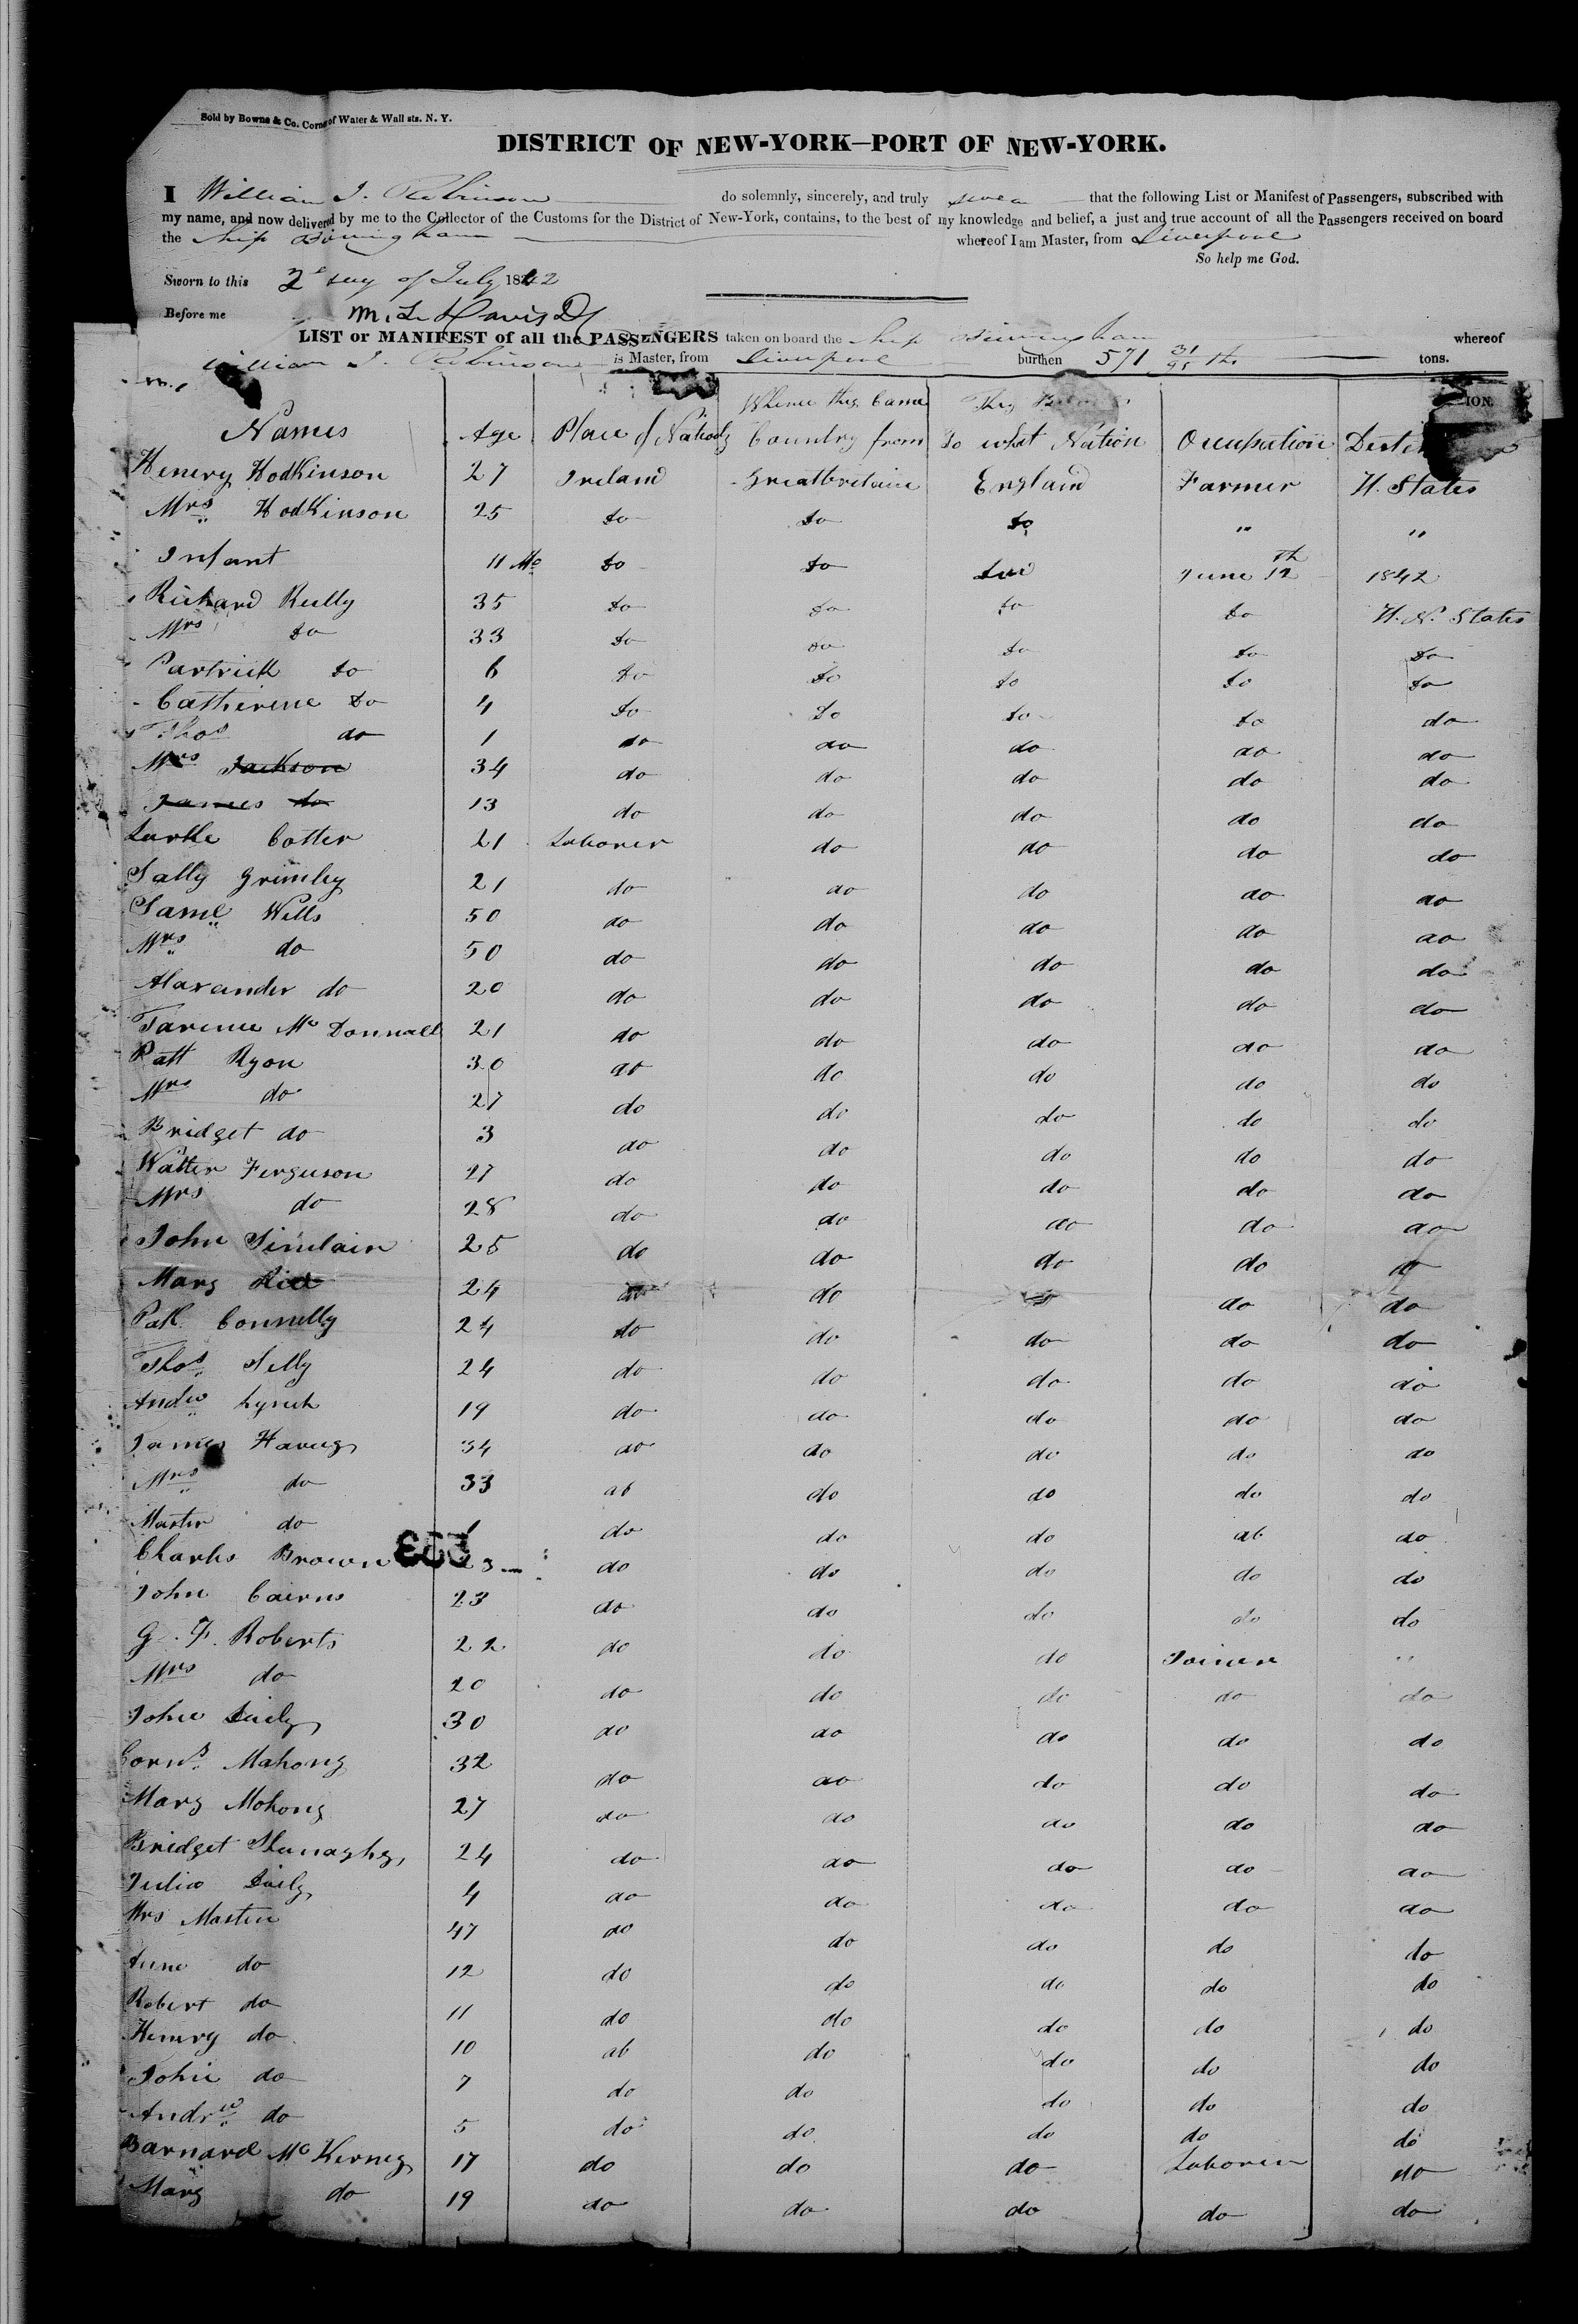 Sold by Bowne & Co. Corner of Water & Wall sts. N. Y.
DISTRICT OF NEW-YORK—PORT OF NEW-YORK.
I William J. Robinson do solemnly, sincerely, and truly swear that the following List or Manifest of Passengers, subscribed with
my name, and now delivered by me to the Collector of the Customs for the District of New-York, contains, to the best of my knowledge and belief, a just and true account of all the Passengers received on board
the Ship Birmingham whereof I am Master, from Liverpool
So help me God.
Sworn to this 2d day of July 1842
Before me M. L. Davis
LIST or MANIFEST of all the PASSENGERS taken on board the Ship Birmingham whereof
William J. Robinson is Master, from Liverpool burthen 571 31/95 th. tons.
Whence they Came They ION.
Names Age Place of Country from To what Nation Occupation
Henery Hodkinson 27 Ireland Greatbritain England Farmer U. States
Mrs Hodkinson 25 do do do " "
Infant 11 Mo do do June 12th 1842
Richard Rielly 35 do do do do U. N. States
Mrs do 33 do do do do do
Partrick do 6 do do do do do
Catherine do 4 do do do do do
Thos do 1 do do do do do
Mrs Jackson 34 do do do do do
James do 13 do do do do do
Cotter 21 Laborer do do do do
Sally Grimley 21 do do do do do
Saml Wells 50 do do do do do
Mrs do 50 do do do do do
Alaxander do 20 do do do do do
Tarence Mc Donnall 21 do do do do do
Patt Ryon 30 do do do do do
Mrs do 27 do do do do do
Bridget do 3 do do do do do
Walter Ferguson 27 do do do do do
Mrs do 28 do do do do do
John Sinclair 25 do do do do do
Mary 24 do do do do do
Patk Connelly 24 do do do do do
Thos 24 do do do do do
Andw Lynch 19 do do do do do
James Harvey 34 do do do do do
Mrs do 33 do do do do do
Master do 1 do do do do do
Charles Brown 23 do do do do do
333
John Cairns 23 do do do do do
G. F. Roberts 22 do do do Joiner "
Mrs do 20 do do do do do
John Daily 30 do do do do do
Corns Mahony 32 do do do do do
Mary Mohony 27 do do do do do
Bridget 24 do do do do do
Julia Daily 4 do do do do do
Mrs Martin 47 do do do do do
Anne do 12 do do do do do
Robert do 11 do do do do do
Henry do 10 do do do do do
John do 7 do do do do do
Andrw do 5 do do do do do
Barnard Mc Kerney 17 do do do Laborer do
Mary do 19 do do do do do